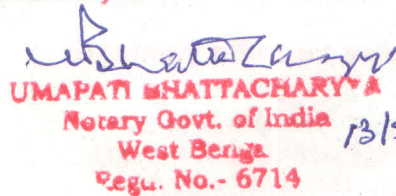 UMAPATI BHATTACHARYYA
Notary Govt. of India
West Benga
Regu. No.- 6714